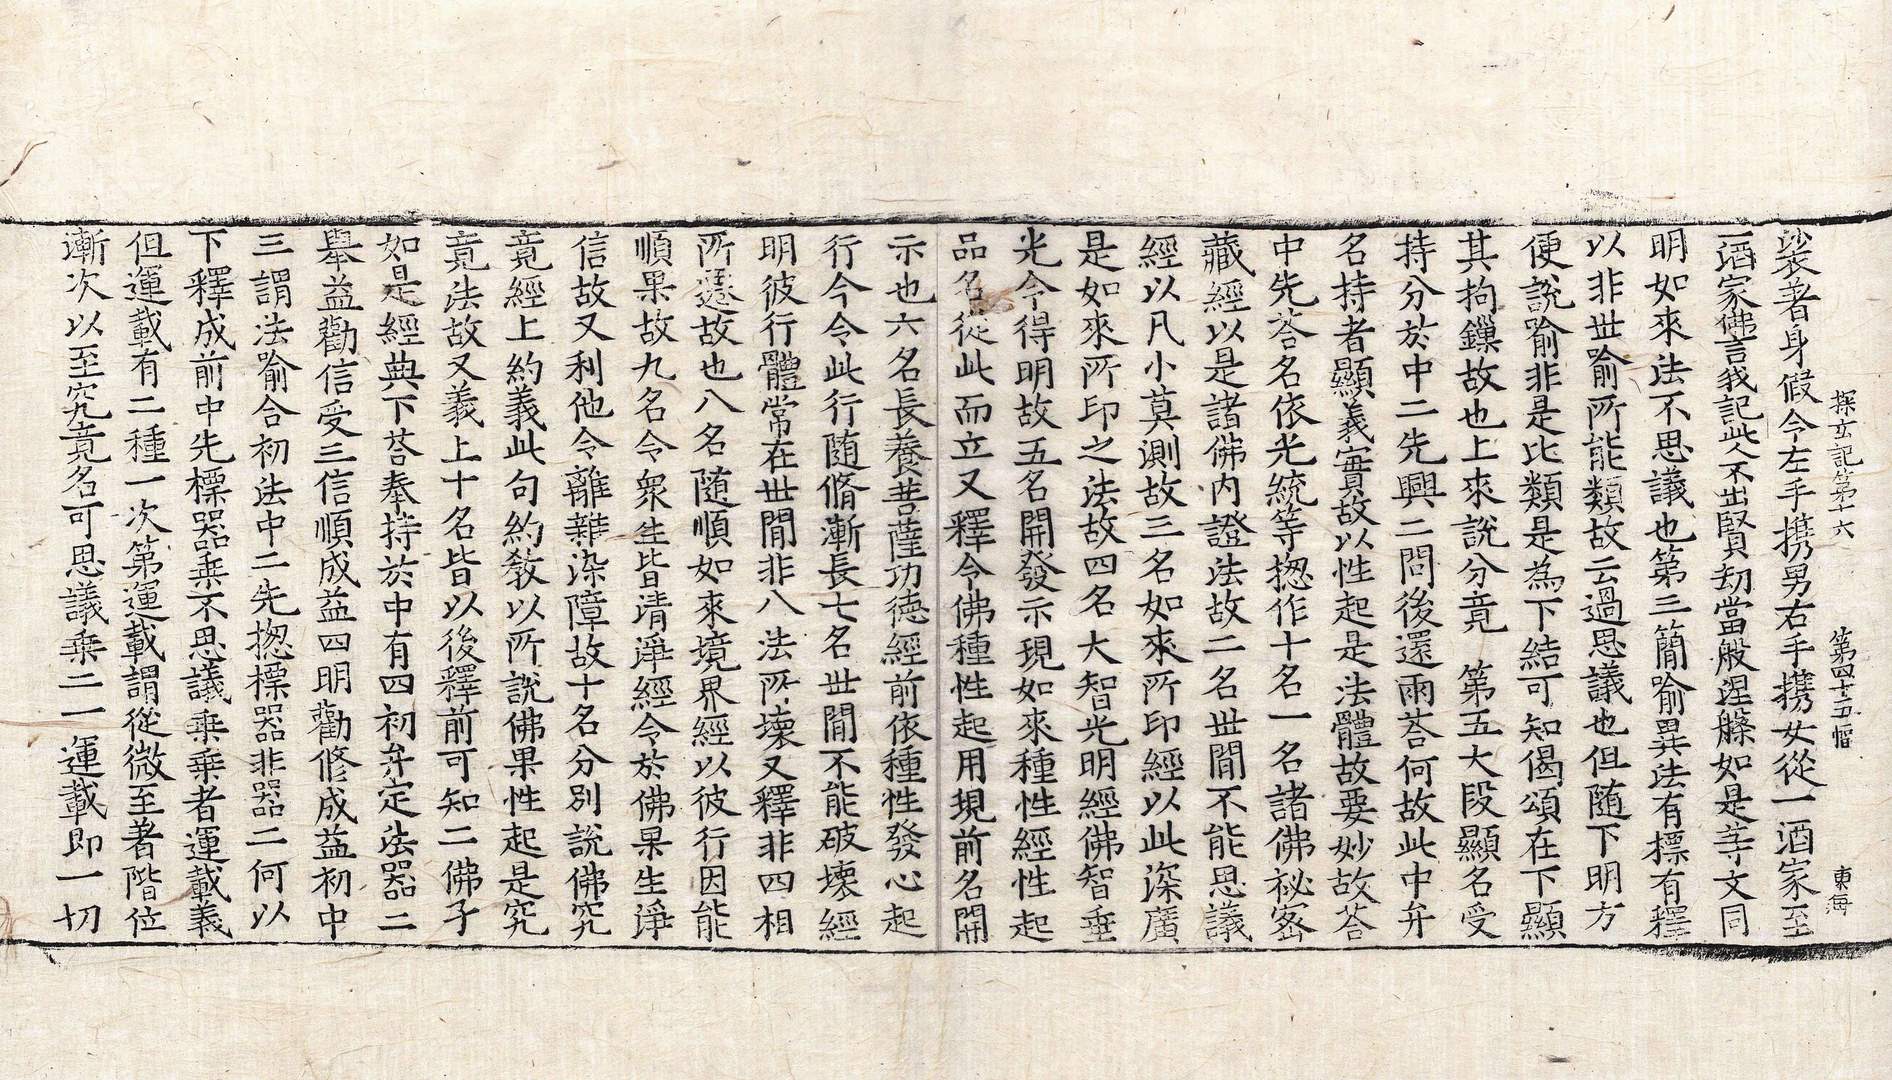 探玄記第十六　第四十五幅　東海
裟著身假令左手攜男右手攜女從一酒家至
一酒家佛言我記此人不出賢劫當般涅槃如是等文同
明如來法不思議也第三簡喻異法有標有釋
以非世喻所能類故云過思議也但隨下明方
便說喻非是比類是為下結可知偈頌在下顯
其拘鏁故也上來說分竟　第五大段顯名受
持分於中二先興二問後還兩荅何故此中弁
名持者顯義實故以性起是法體故要妙故荅
中先荅名依光統等揔作十名一名諸佛祕宻
藏經以是諸佛內證法故二名世閒不能思議
經以凡小莫測故三名如來所印經以此深廣
是如來所印之法故四名大智光明經佛智垂
光令得明故五名開發示現如來種性經性起
品名從此而立又釋令佛種性起用現前名開
示也六名長養菩薩功德經前依種性發心起
行今令此行随脩漸長七名世閒不能破壞經
明彼行體常在世閒非八法所壞又釋非四相
所遷故也八名随順如來境界經以彼行因能
順果故九名令衆生皆清淨經令於佛果生淨
信故又利他令離雜染障故十名分別說佛究
竟經上約義此句約敎以所說佛果性起是究
竟法故又義上十名皆以後釋前可知二佛子
如是經典下荅奉持於中有四初弁定法器二
舉益勸信受三信順成益四明勸修成益初中
三謂法喻合初法中二先揔標器非器二何以
下釋成前中先標器乗不思議乗乗者運載義
但運載有二種一次第運載謂從微至著階位
漸次以至究竟名可思議乗二一運載即一切